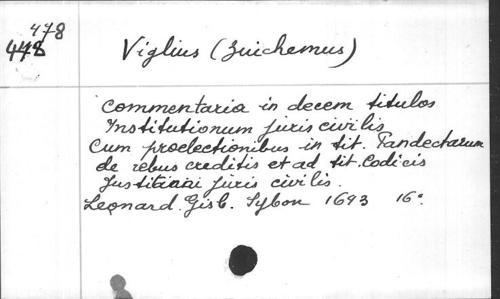 478
448
Viglius (Zuichemus)
Commentaria in decem titulos
Institutionum juris civilis
Cum proelectionibus in tit. Pandectarum
de rebus creditis et ad tit. Codicis
Justiniani juris civilis.
Leonard. Gisb. Sybon 1693 16°